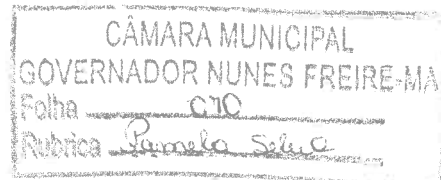 CÂMARA MUNICIPAL
GOVERNADOR NUNES FREIRE-MA
Folha 070
Rubrica Pamela Silva